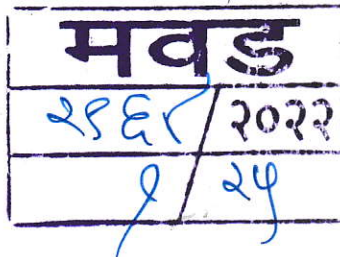 मवड
२९६४/२०२२
१/२५